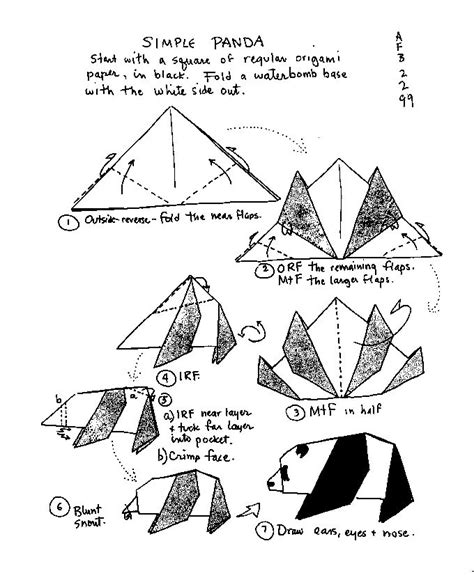 SIMPLE PANDA
Start with a square of regular origami
paper, in black. Fold a waterbomb base
with the white side out.
A
F
B
2
2
99
1 Outside-reverse-fold the near flaps.
2 ORF the remaining flaps.
MtF the larger flaps.
3 MtF in half
4 IRF.
a
b
5
a) IRF near layer
+ tuck far layer
into pocket.
b) Crimp face.
6 Blunt
snout.
7 Draw ears, eyes + nose.